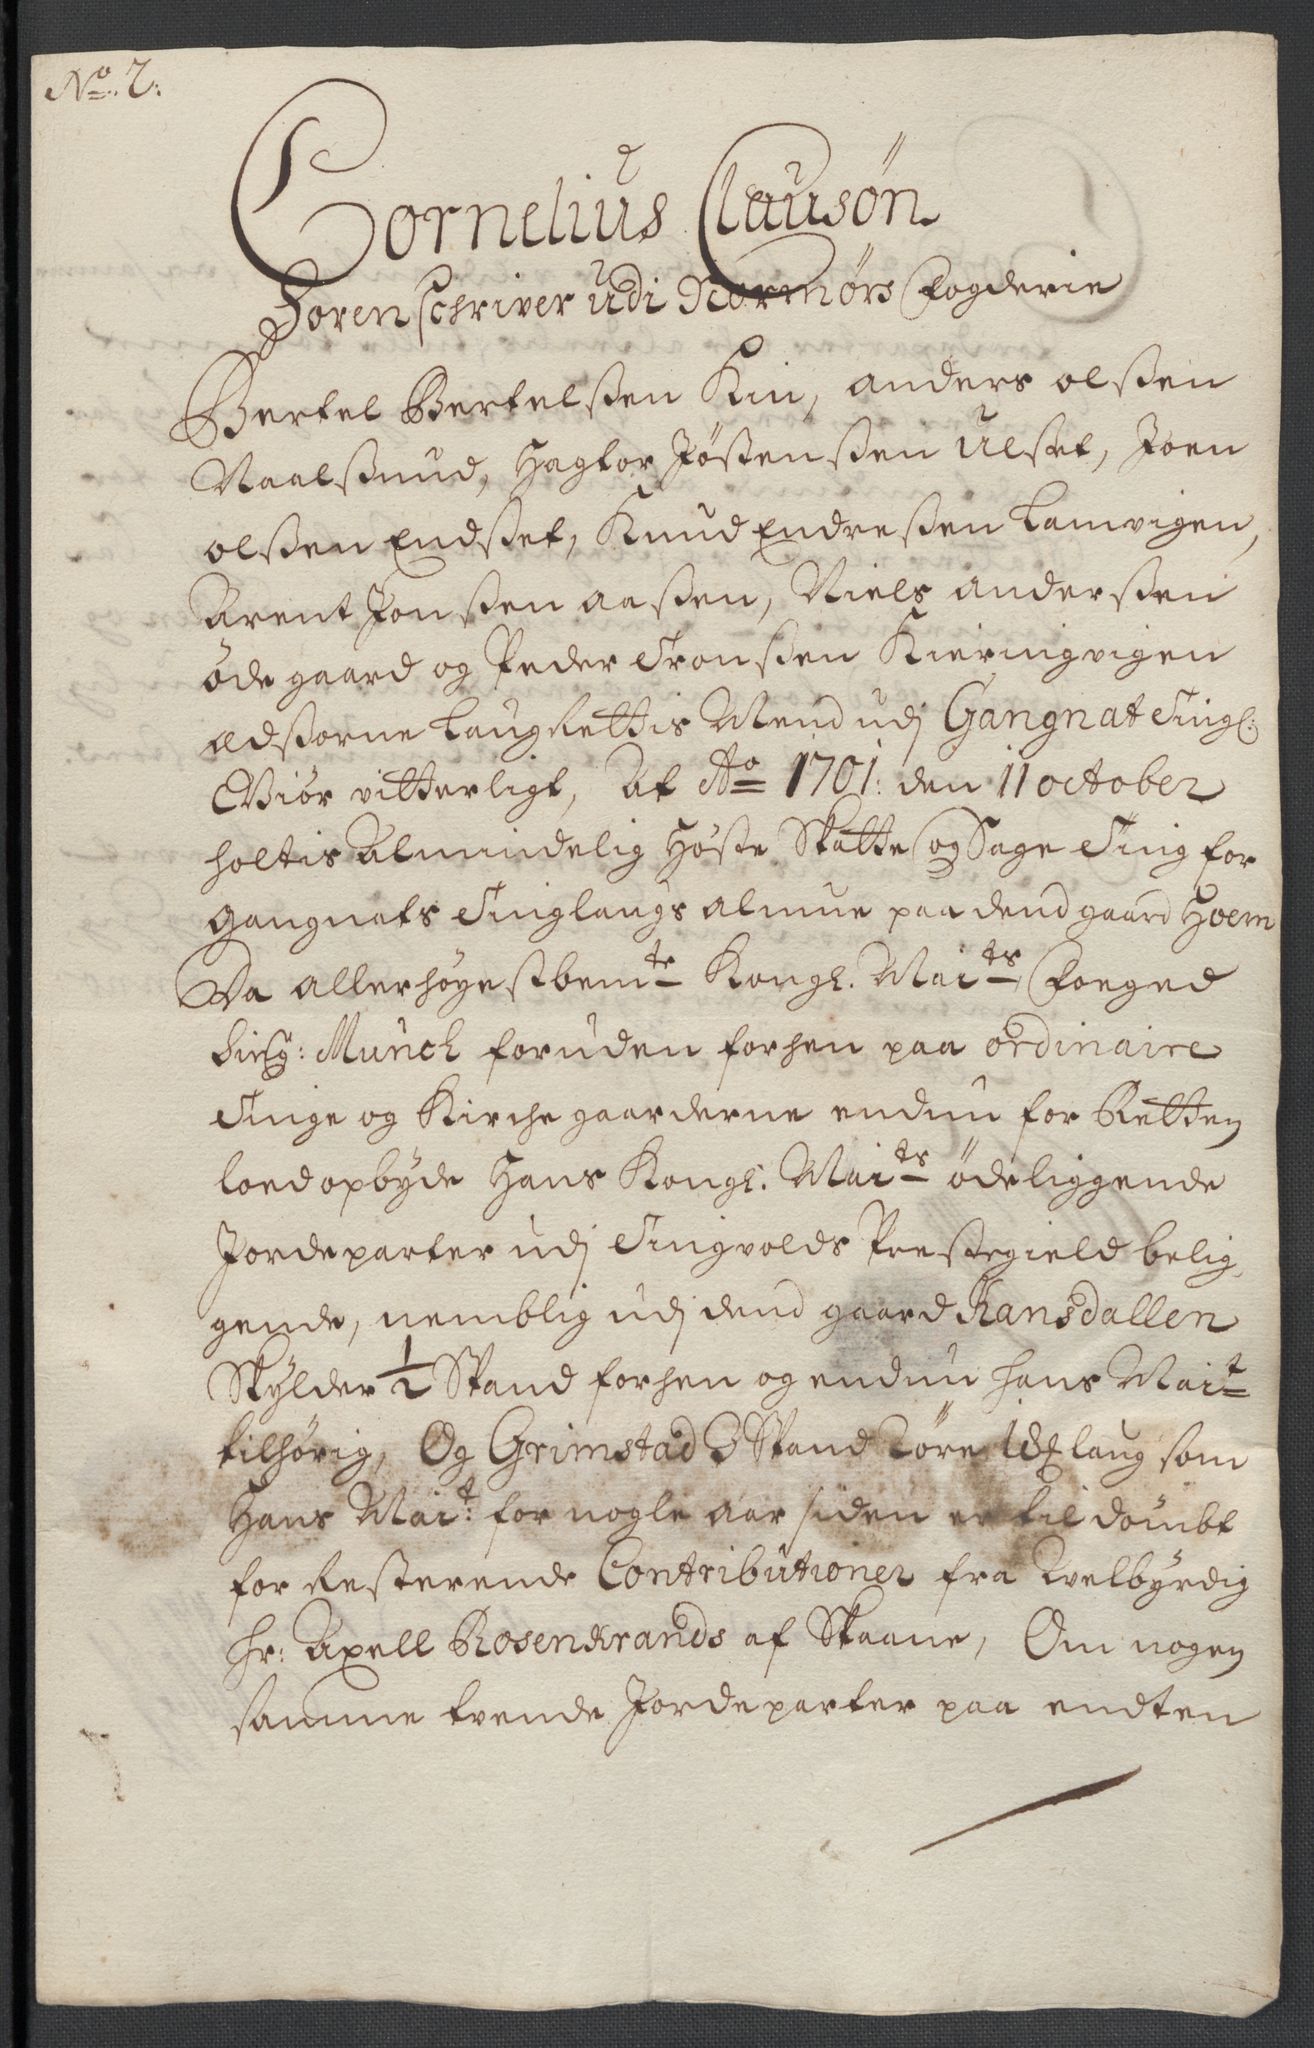 No. 7.
Cornelius Clausøn
Sorenschriver udi Normørs fogderie
Bertel Bertelssen Kiu, anders olssen
Naalsund, Hagtor Jøstenssen Ulset, Joen
olssen Endset, Knud Endressen Lamvigen,
Arent Jonssen aassen, Niels anderssen
öde gaard og Peder Tronssen Kieringvigen
edsorne LaugRettis Mend udj Gangnat Tingl:
Giör vitterligt, At Ao 1701: den 11 october
holtis Almindelig Høste Skatte og Sage Ting for
Gangnats Tinglaugs almue paa dend gaard Hoem
Da allerhøyestbemte Kongl. Maits Foeged
Sigr: Munch foruden forhen paa ordinaire
Tinge og Kirche gaarderne endnu for Retten
loed opbyde Hans Kongl. Maits ödeliggende
Jordeparter udj Tingvolds Prestegield belig,
gende, nemblig udj dend gaard Ransdallen
Skylder ½ Spand forhen og endnu hans Mait
tilhørig, Og Grimstad 2 Spand Løre laug som
Hans Mait: for nogle aar siden er til dömbt
for Resterende Contributioner fra Velbyrdig
hr: Axell Rosenkrands af Skaane, Om nogen
samme tvende Jordeparter paa endten